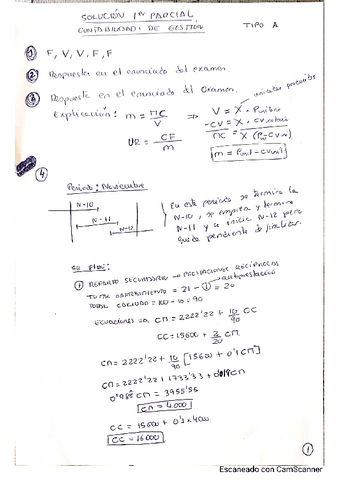 SOLUCIÓN 1er PARCIAL
CONTABILIDAD DE GESTIÓN TIPO A
① F, V, V, F, F
② Respuesta en el enunciado del examen.
③ Respuesta en el enunciado del examen.
Explicación: m = MC / V ⇒ V = X · Punitario
unidades producidas
-CV = X · CVunitario
MC = X (Pu-CVuni)
UR = CF / m
m = Punit - CVunit
④
Periodo: Noviembre
N-10
N-11
N-12
En este periodo se termina la
N-10, se empieza y termina
N-11 y se inicia N-12 pero
queda pendiente de finalizar.
① REPARTO SECUNDARIO → PRESTACIONES RECÍPROCAS
autoprestación
TOTAL MANTENIMIENTO = 21 - ① = 20
TOTAL = 100 - 10 = 90
ECUACIONES ⇒ CM = 2222'22 + 10/90 CC
CC = 15600 + 2/20 CM
CM = 2222'22 + 10/90 [15600 + 0'1 CM]
CM = 2222'22 + 1733'33 + 0'011 CM
0'988 CM = 3955'55
CM = 4000
CC = 15600 + 0'1 x 4000
CC = 16000
①
Escaneado con CamScanner